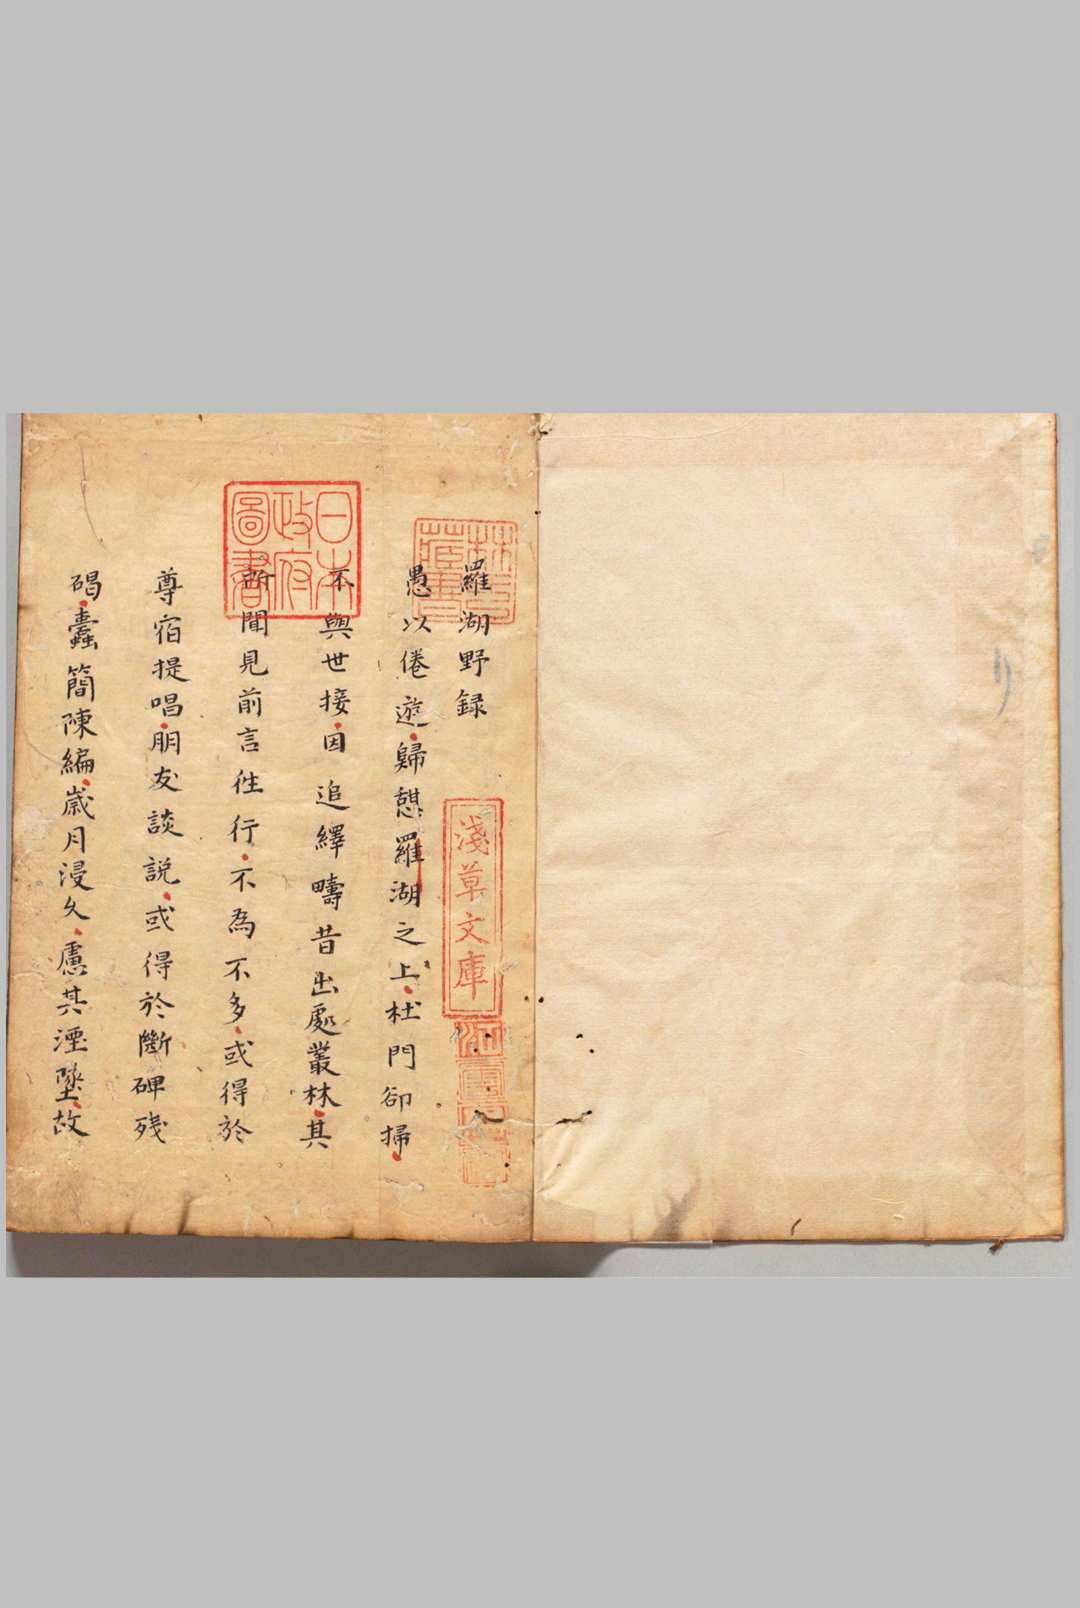 羅湖野録
愚以倦遊歸憇羅湖之上杜門卻掃
不與世接因追繹疇昔出處叢林其
所聞見前言徃行不為不多或得於
尊宿提唱朋友談說或得於斷碑殘
碣蠧簡陳編歲月浸久慮其湮墜故
林氏藏書
淺草文庫
日本政府圖書